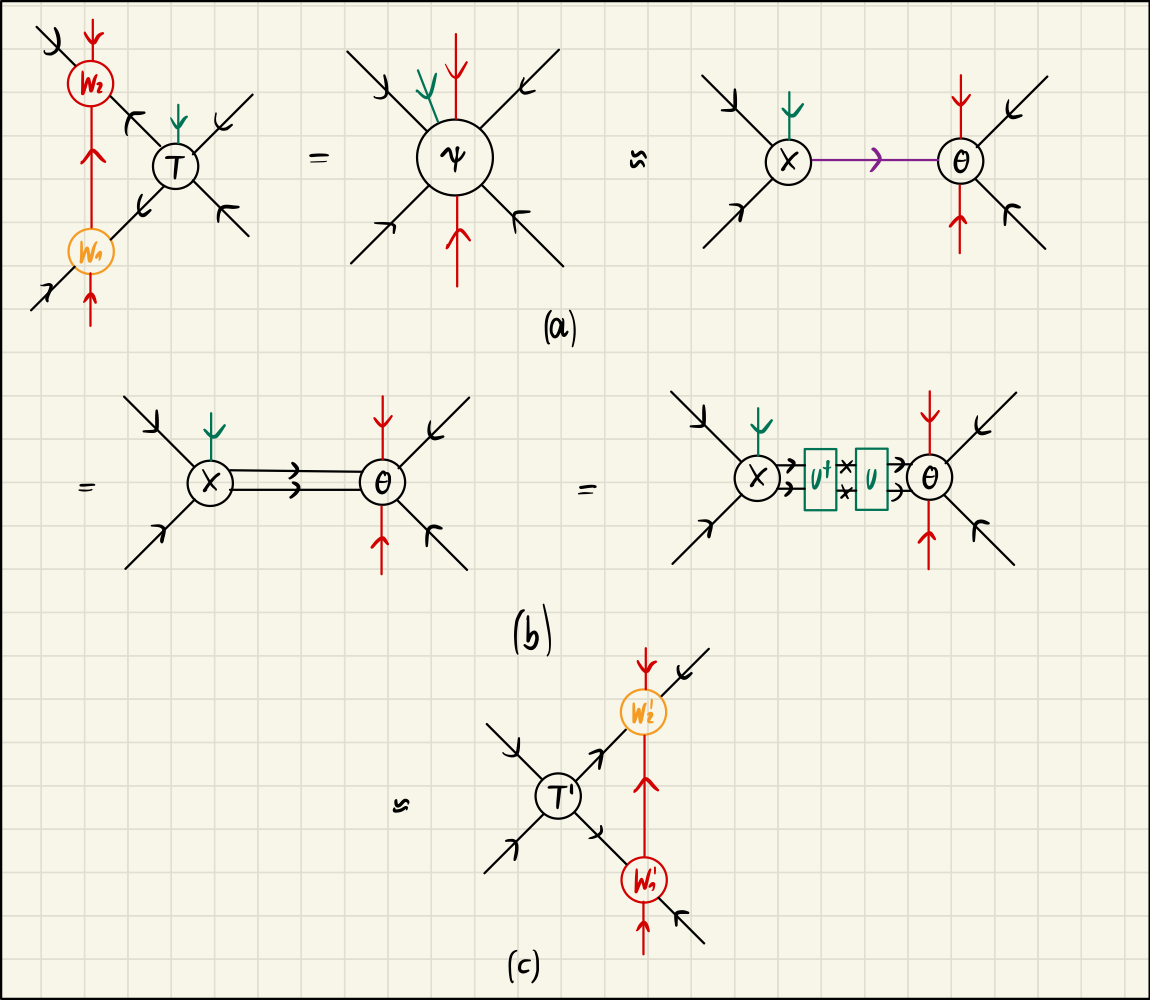 W₂
T
W₁
=
ψ
≈
X
θ
(a)
=
X
θ
=
X
U†
U
θ
(b)
≈
T'
W₂'
W₁'
(c)